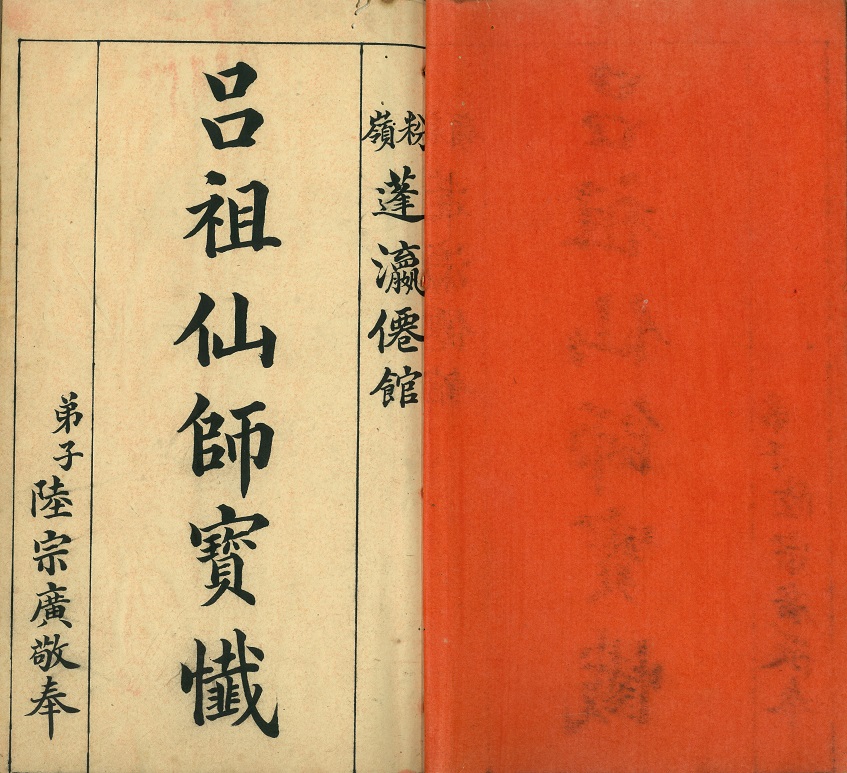 粉嶺蓬瀛僊館
呂祖仙師寶懺
弟子陸宗廣敬奉